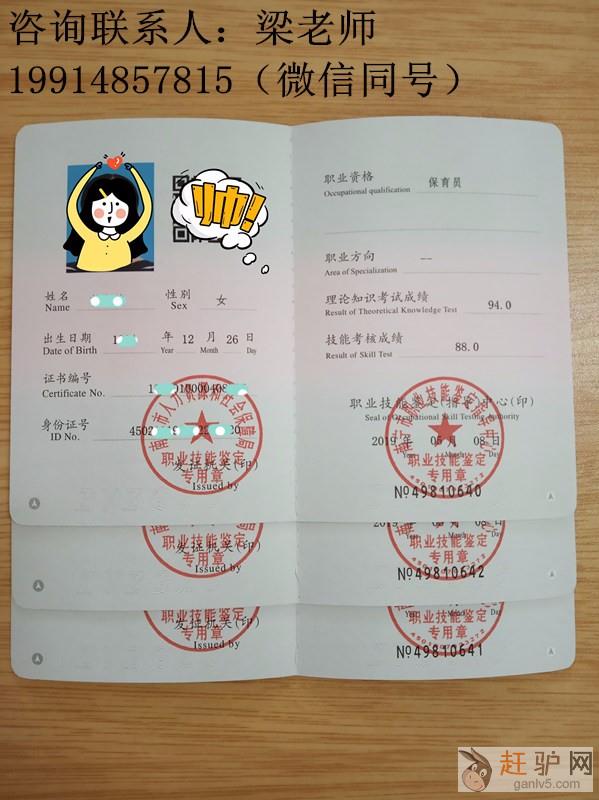 咨询联系人：梁老师
19914857815（微信同号）
帅!
姓名
Name
性别
Sex
女
出生日期
Date of Birth
年 12 月 26 日
Year Month Day
证书编号
Certificate No.
身份证号
ID No.
职业技能鉴定
专用章
发证机关(印)
Issued by
职业资格
Occupational qualification
保育员
职业方向
Area of Specialization
--
理论知识考试成绩
Result of Theoretical Knowledge Test
94.0
技能考核成绩
Result of Skill Test
88.0
职业技能鉴定(指导)中心(印)
Seal of Occupational Skill Testing Authority
2019 年 05 月 08 日
Year Month Day
职业技能鉴定
专用章
№49810640
职业技能鉴定
专用章
发证机关(印)
Issued by
Year Month Day
职业技能鉴定
专用章
№49810642
职业技能鉴定
专用章
发证机关(印)
Issued by
职业技能鉴定
专用章
№49810641
赶驴网
ganlv5.com